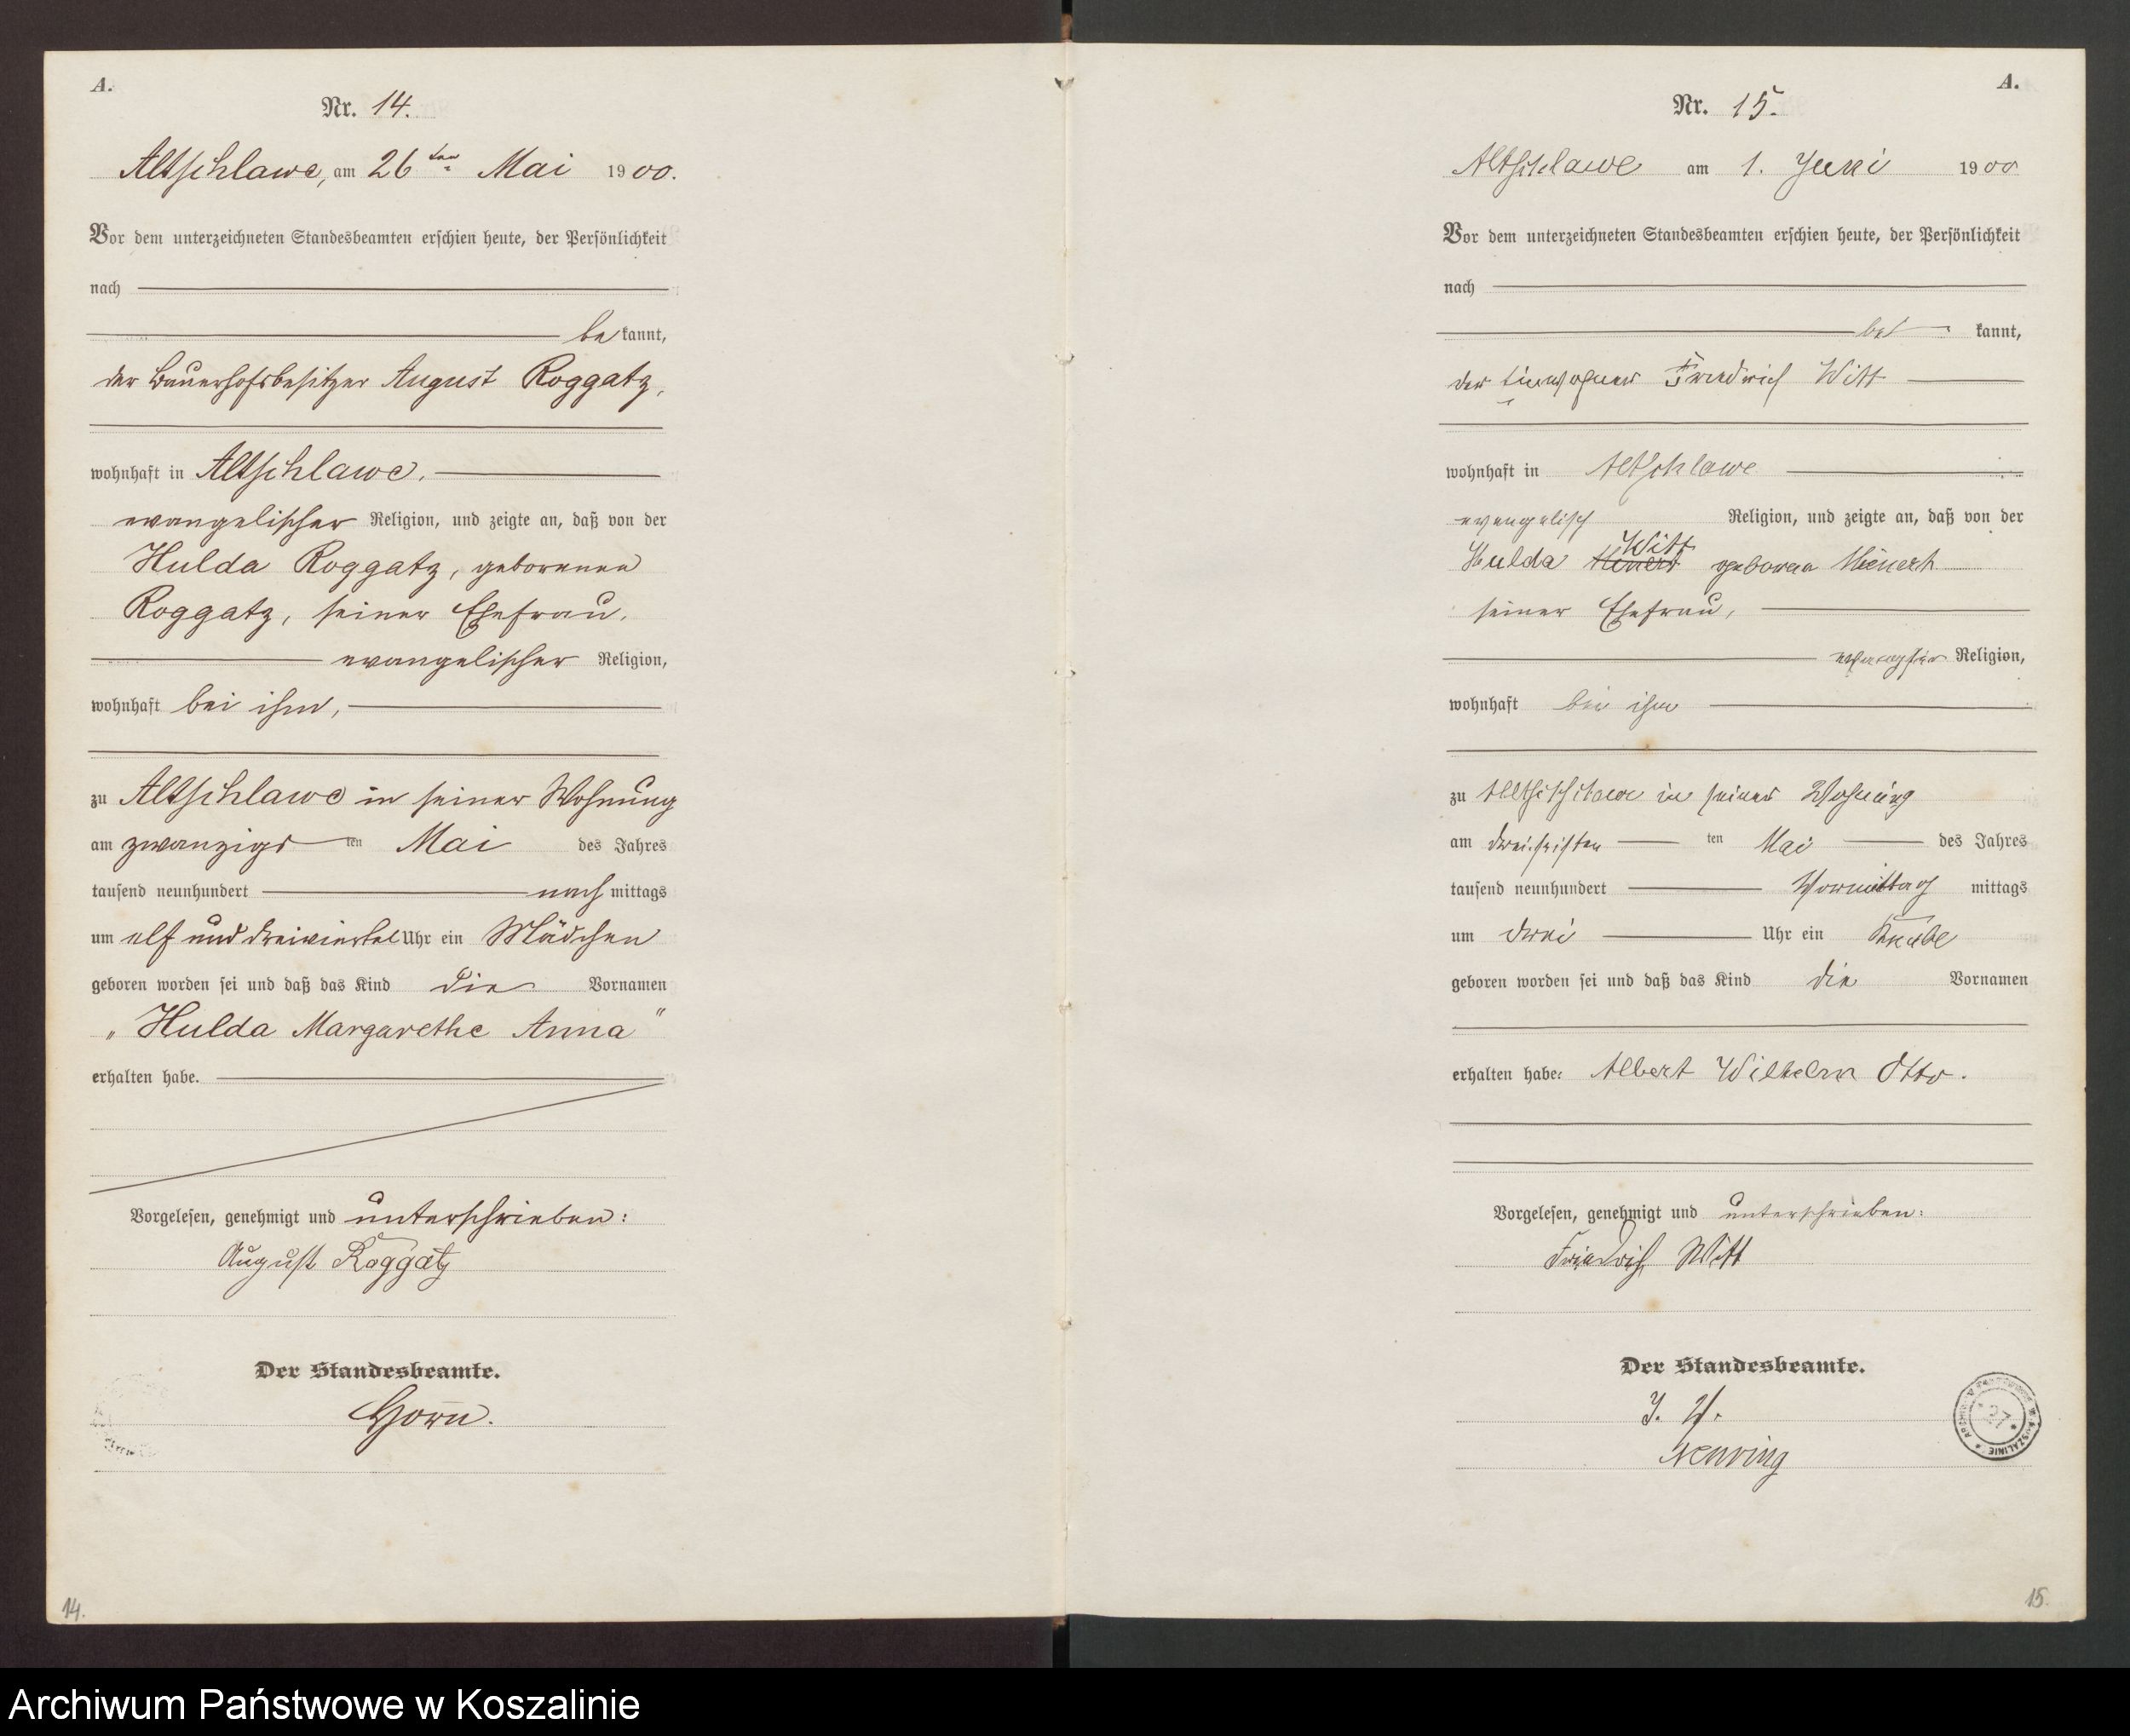 A.
Nr. 14.
Altschlawe, am 26ten Mai 1900.
Vor dem unterzeichneten Standesbeamten erschien heute, der Persönlichkeit
nach
bekannt,
der Bauerhofsbesitzer August Roggatz,
wohnhaft in Altschlawe,
evangelischer Religion, und zeigte an, daß von der
Hulda Roggatz, geborenen
Roggatz, seiner Ehefrau,
evangelischer Religion,
wohnhaft bei ihm,
zu Altschlawe in seiner Wohnung
am zwanzigsten Mai des Jahres
tausend neunhundert nachmittags
um elf und dreiviertel Uhr ein Mädchen
geboren worden sei und daß das Kind die Vornamen
„Hulda Margarethe Anna"
erhalten habe.
Vorgelesen, genehmigt und unterschrieben:
August Roggatz
Der Standesbeamte.
Horn.
14.
A.
Nr. 15.
Altschlawe am 1. Juni 1900
Vor dem unterzeichneten Standesbeamten erschien heute, der Persönlichkeit
nach
kannt,
der Einwohner Friedrich Witt
wohnhaft in Altschlawe
evangelisch Religion, und zeigte an, daß von der
Witt
Hulda geboren
seiner Ehefrau,
Religion,
wohnhaft bei ihm
zu in seiner Wohnung
am ten Mai des Jahres
tausend neunhundert Vormittag mittags
um drei Uhr ein Knabe
geboren worden sei und daß das Kind die Vornamen
erhalten habe: Albert Wilhelm Otto.
Vorgelesen, genehmigt und unterschrieben:
Friedrich Witt
Der Standesbeamte.
J. V.
Nenring
15.
Archiwum Państwowe w Koszalinie